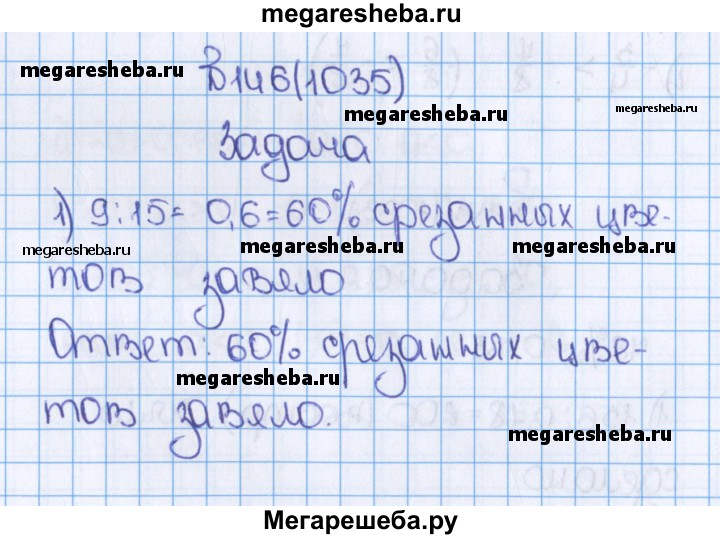 megaresheba.ru
megaresheba.ru
В146(1035)
megaresheba.ru
megaresheba.ru
Задача
1) 9:15= 0,6=60% срезанных цве-
megaresheba.ru
megaresheba.ru
megaresheba.ru
тов завяло
Ответ: 60% срезанных цве-
megaresheba.ru
тов завяло.
megaresheba.ru
Мегарешеба.ру